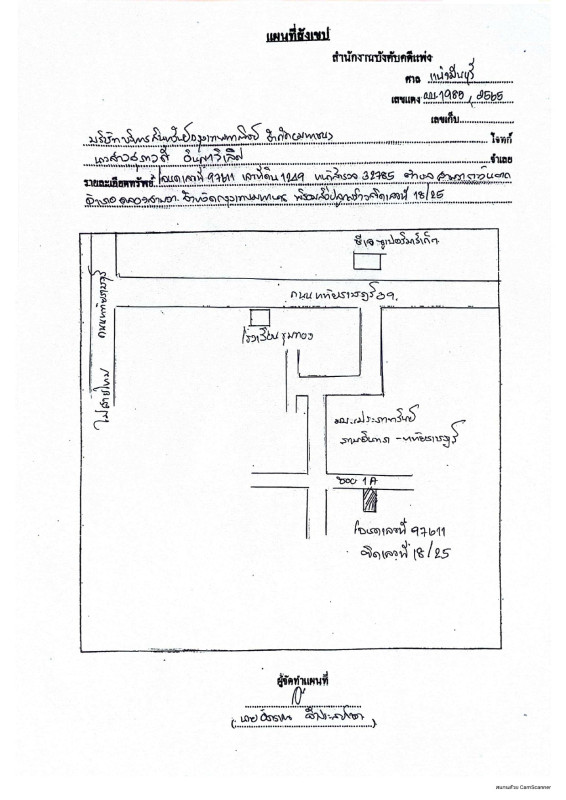 แผนที่สังเขป
สำนักงานบังคับคดีแพ่ง
ศาล แพ่งมีนบุรี
เลขแดง ผบ.1989 / 2565
เลขเก็บ
บริษัทบริหารสินทรัพย์กรุงเทพพาณิชย์ จำกัด(มหาชน) โจทก์
นางสาว จำเลย
รายละเอียดทรัพย์ โฉนดเลขที่ 97611 เลขที่ดิน 1249 หน้าสำรวจ 32785 ตำบล สามวาตะวันตก
อำเภอ คลองสามวา จังหวัดกรุงเทพมหานคร พร้อมสิ่งปลูกสร้างติดเลขที่ 18/25
ซีเจ ซูเปอร์มาร์เก็ต
ถนนหทัยราษฎร์
ถนนหทัยราษฎร์ 39
โรงเรียน
ไปสายไหม
รามอินทรา - หทัยราษฎร์
ซอย 1A
โฉนดเลขที่ 97611
ติดเลขที่ 18/25
ผู้จัดทำแผนที่
สแกนด้วย CamScanner